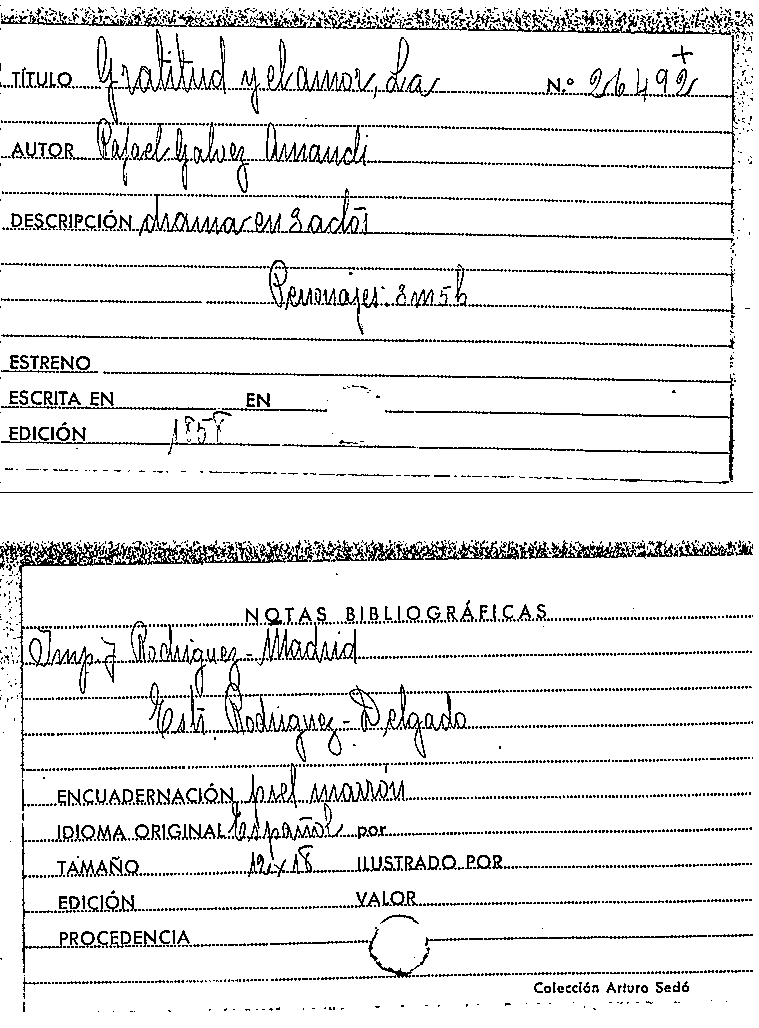 TÍTULO Gratitud y el amor, La N.º 26492 +
AUTOR Rafael Galvez Amandi
DESCRIPCIÓN drama en 3 actos
Personajes: 3m5h
ESTRENO
ESCRITA EN EN
EDICIÓN 1858
NOTAS BIBLIOGRÁFICAS
Imp. J Rodriguez - Madrid
Estr. Rodriguez - Delgado
ENCUADERNACIÓN piel marrón
IDIOMA ORIGINAL Español por
TAMAÑO 12x18 ILUSTRADO POR
EDICIÓN VALOR
PROCEDENCIA
Colección Arturo Sedó